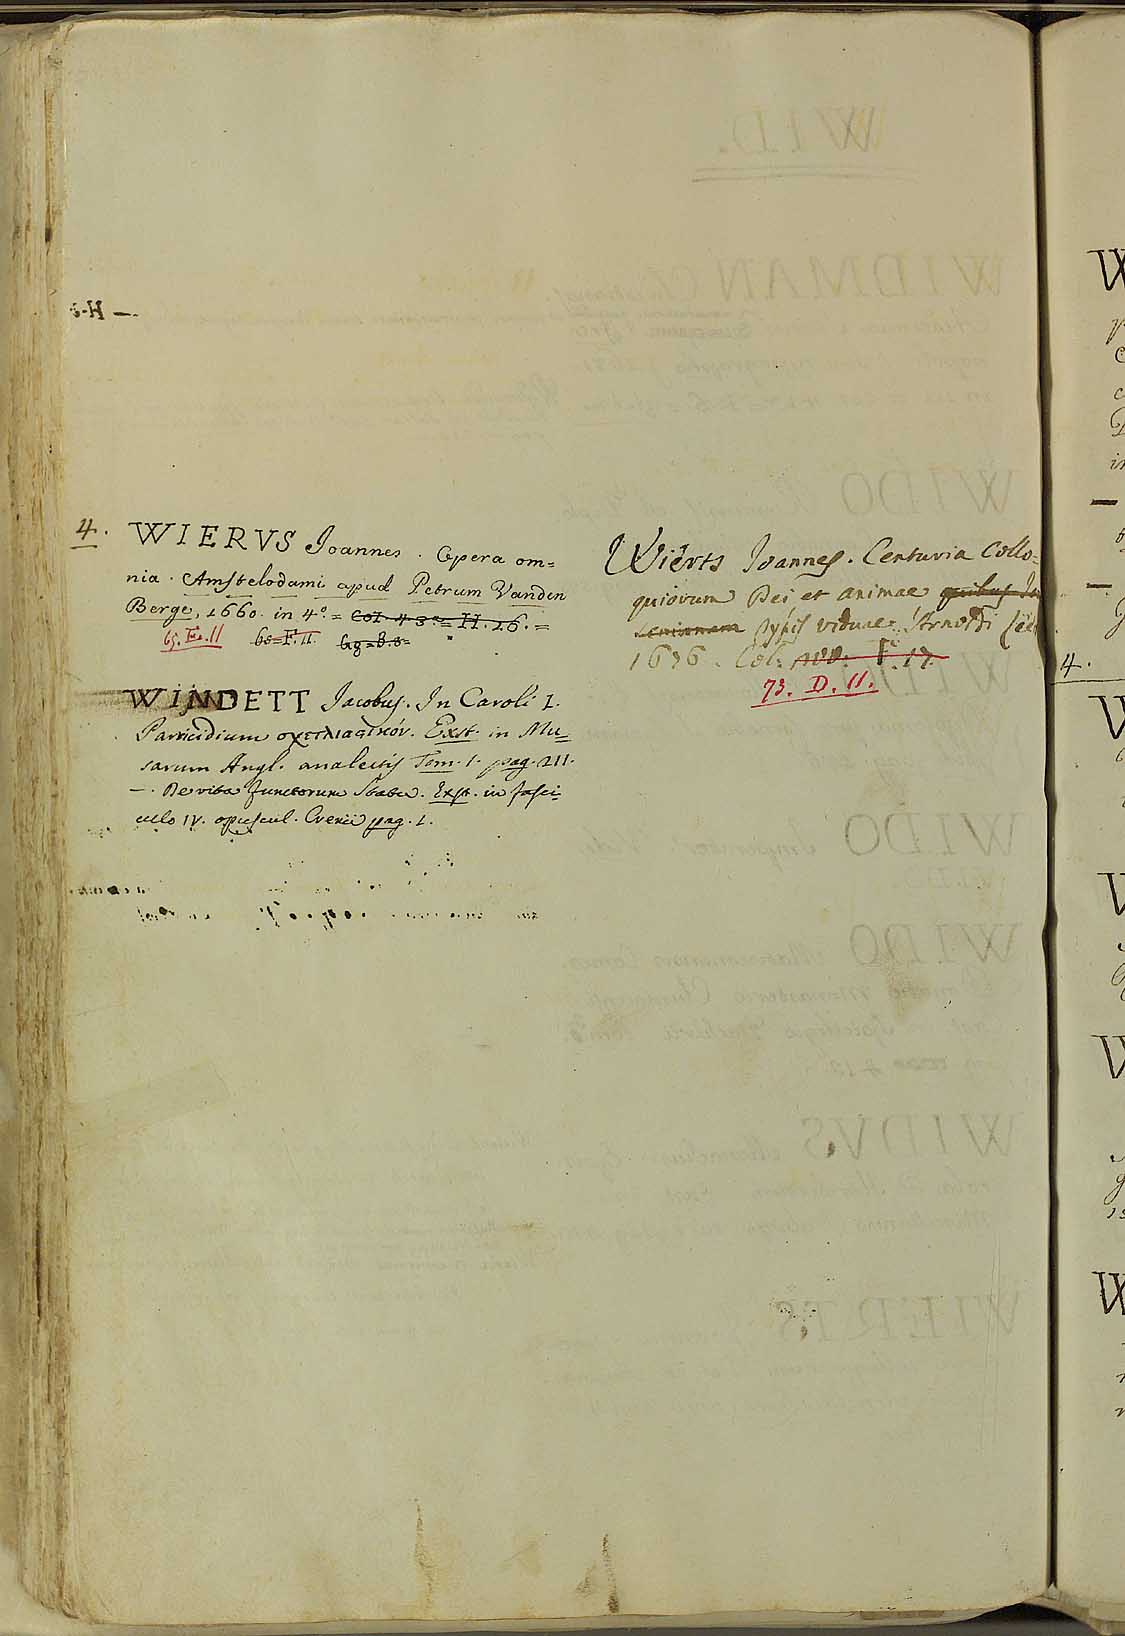 4. WIERVS Joannes. Opera om=
nia. Amstelodami apud Petrum Vanden
Berge, 1660. in 4° = Col. 4 3 = H. 16. =
65. E. 11 60 = F. 11. Gg = B. 8 =
WINDETT Jacobus. In Caroli I.
Parricidium σχετλιαστικόν. Exst. in Mu=
sarum Angl. analectis Tom. I. pag. 211.
—. De vita functorum Statu. Exst. in fasci=
culo IV. opuscul. Crenii pag. 1.
Wiërts Joannes. Centuria Collo=
quiorum Dei et animae quibus
typis viduae Arnoldi
1676. Col: F. 17.
73. D. 11.
4.